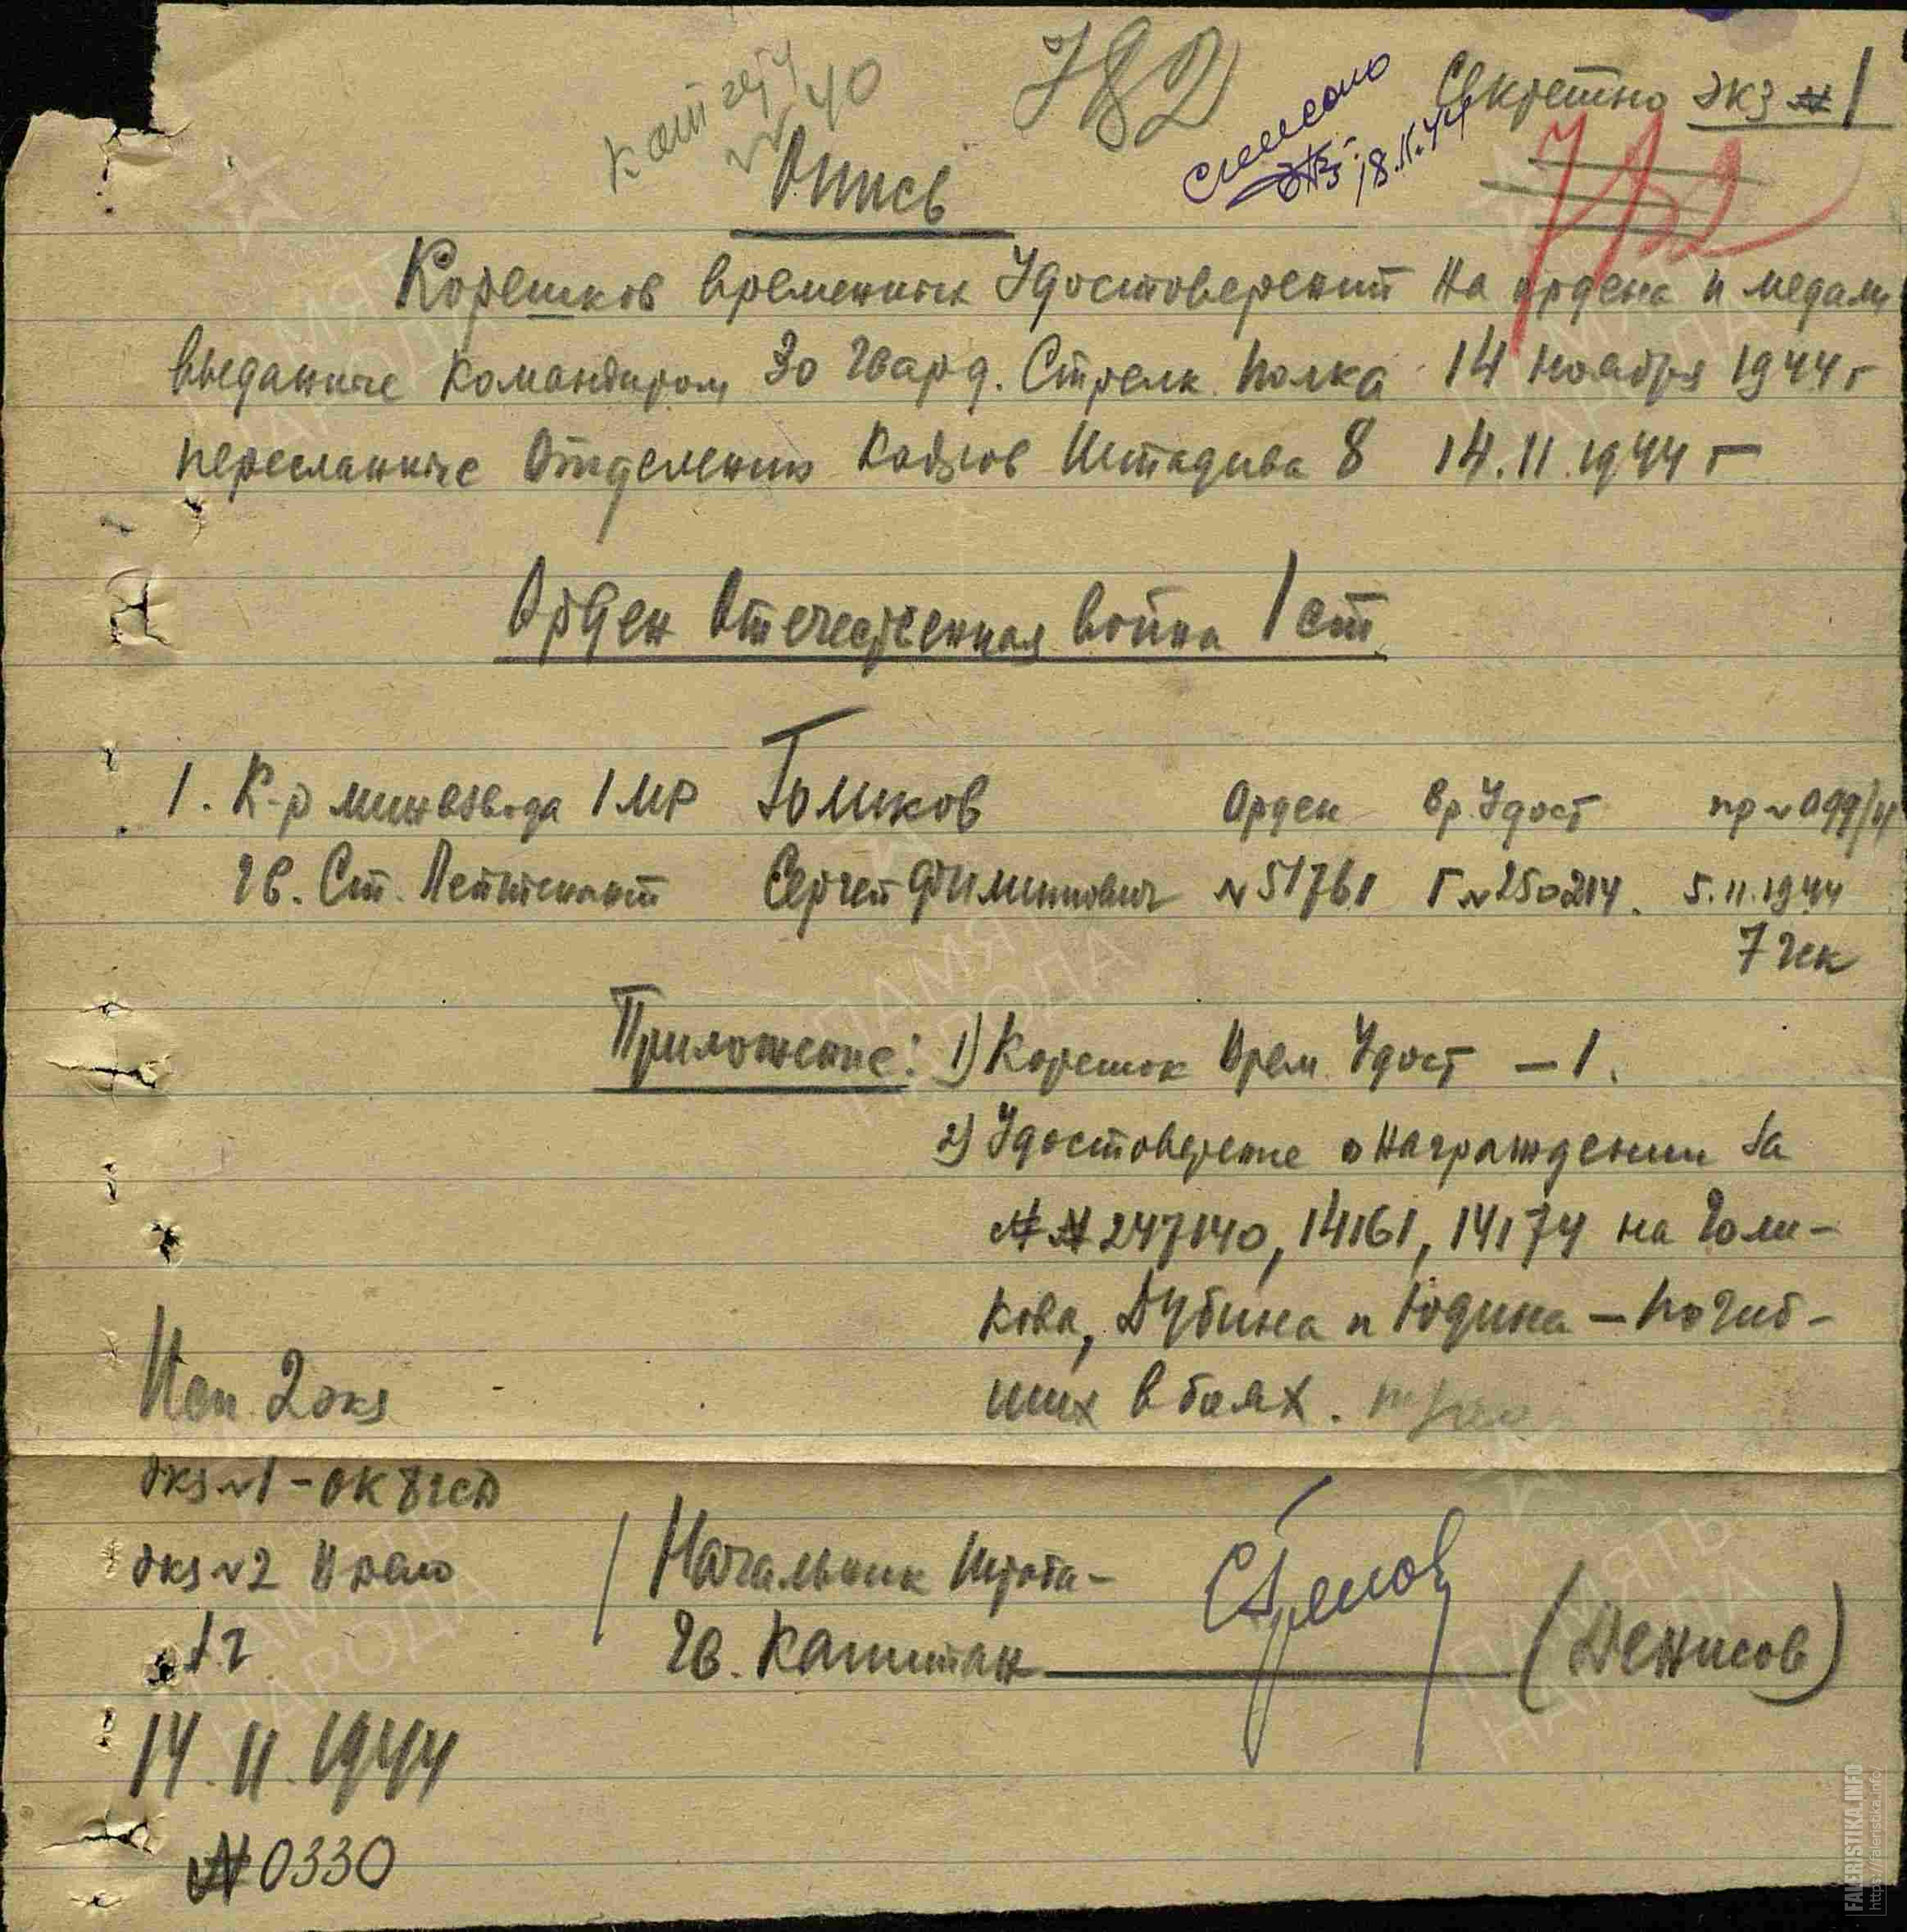 782
40
Секретно экз №1
списано
18.11.44
782
Опись
Корешков временных Удостоверений на ордена и медали
выданные командиром 30 Гвард. Стрелк. полка 14 ноября 1944 г
пересланные Отделению Кадров Штадива 8 14.11.1944 г
Орден Отечественная война 1 ст.
1. К-р минвзвода 1 МР Гомиков Орден Вр. Удост пр № 099/н
Гв. Ст. Лейтенант Сергей Филиппович №51761 Г №250214. 5.11.1944
7 гск
Приложение: 1) Корешок Врем. Удост – 1.
2) Удостоверение о награждении за
№№ 247140, 14161, 14174 на Голи-
кова, Дубина и Юдина – погиб-
ших в боях.
Исп 2 экз
экз №1 – ОК 8 гсд
экз №2 в дело
14.11.1944
№0330
Начальник Штаба –
Гв. Капитан (Денисов)
ПАМЯТЬ НАРОДА
FALERISTIKA.INFO
https://faleristika.info/